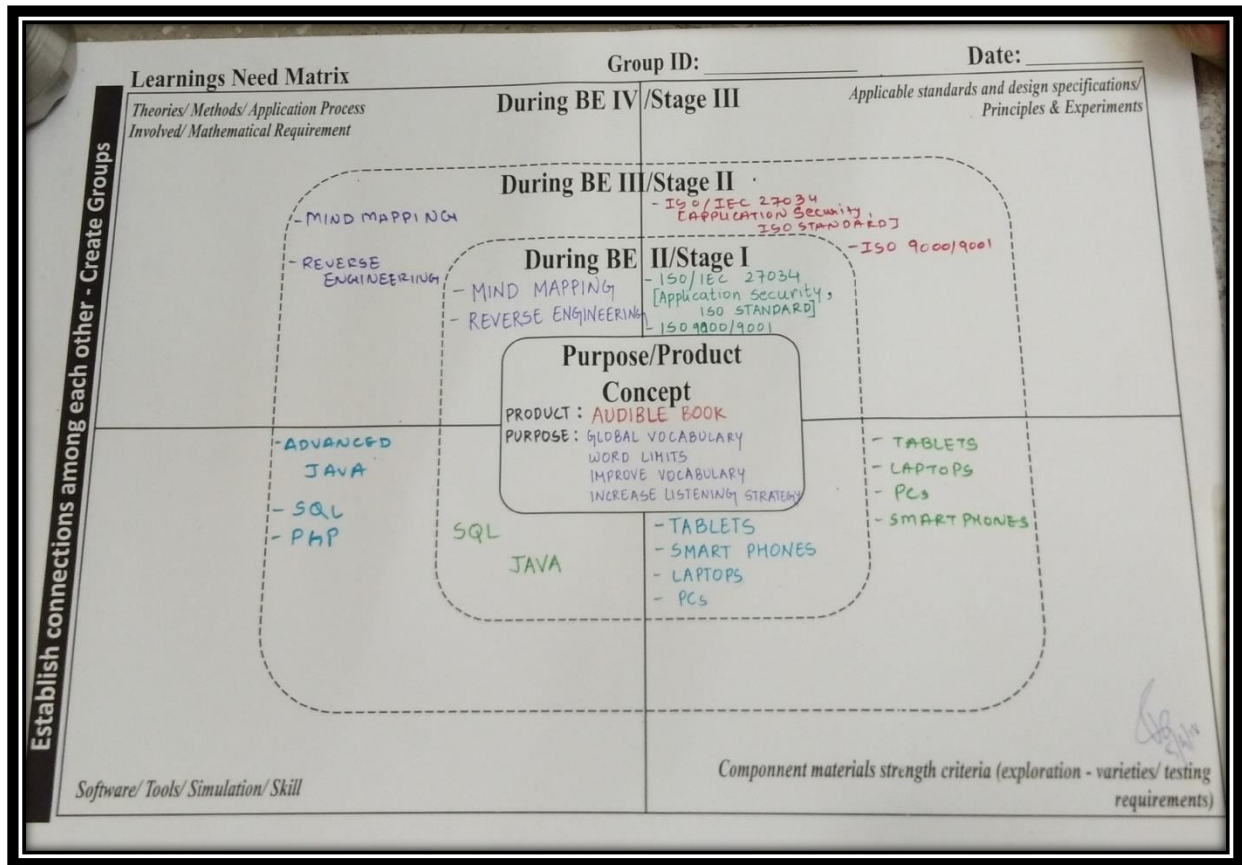 Establish connections among each other - Create Groups
Learnings Need Matrix
Group ID:
Date:
Theories/ Methods/ Application Process
Involved/ Mathematical Requirement
During BE IV/Stage III
Applicable standards and design specifications/
Principles & Experiments
During BE III/Stage II
- MIND MAPPING
- REVERSE
ENGINEERIING
- ISO/IEC 27034
[APPLICATION Security,
ISO STANDARD]
- ISO 9000/9001
During BE II/Stage I
- MIND MAPPING
- REVERSE ENGINEERING
- ISO/IEC 27034
[Application security,
ISO STANDARD]
- ISO 9000/9001
Purpose/Product
Concept
PRODUCT: AUDIBLE BOOK
PURPOSE: GLOBAL VOCABULARY
WORD LIMITS
IMPROVE VOCABULARY
INCREASE LISTENING STRATEGY
- ADVANCED
JAVA
- SQL
- PHP
SQL
JAVA
- TABLETS
- SMART PHONES
- LAPTOPS
- PCs
- TABLETS
- LAPTOPS
- PCs
- SMART PHONES
Software/ Tools/ Simulation/ Skill
Componnent materials strength criteria (exploration - varieties/ testing
requirements)